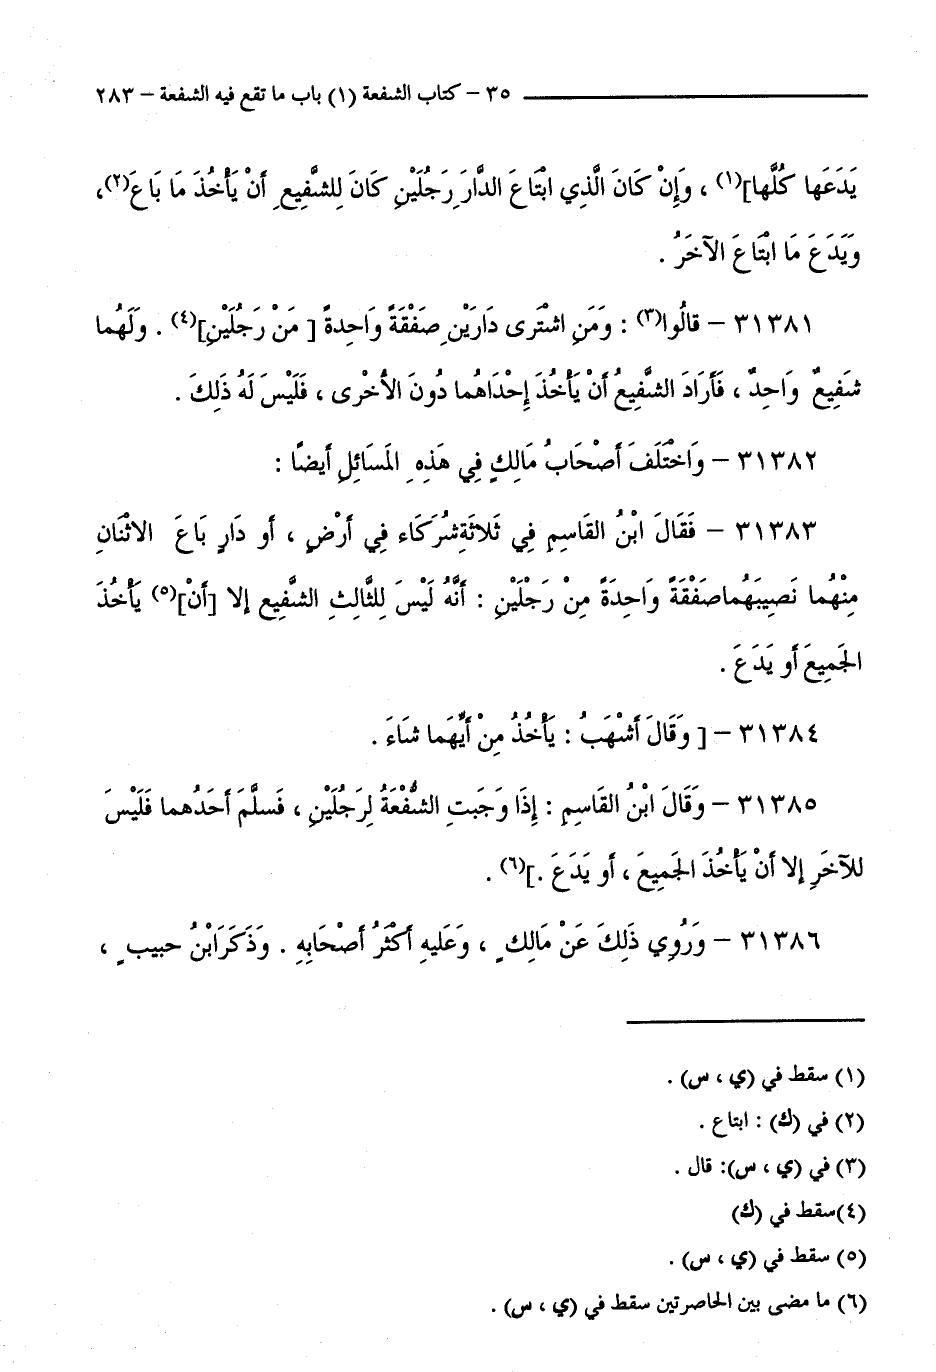 ٣٥ – كتاب الشفعة (١) باب ما تقع فيه الشفعة – ٢٨٣
يَدَعَها كُلَّها](١) ، وَإِنْ كَانَ الَّذِي ابْتَاعَ الدَّارَ رَجُلَيْنِ كَانَ لِلشَّفِيعِ أَنْ يَأْخُذَ مَا بَاعَ(٢)،
وَيَدَعَ مَا ابْتَاعَ الآخَرُ .
٣١٣٨١ – قالُوا(٣) : وَمَنِ اشْتَرى دَارَيْنِ صَفْقَةً وَاحِدةً [ مَنْ رَجُلَيْنِ](٤) . وَلَهُما
شَفِيعٌ وَاحِدٌ ، فَأَرَادَ الشَّفِيعُ أَنْ يَأْخُذَ إِحْدَاهُما دُونَ الأُخْرى ، فَلَيْسَ لَهُ ذَلِكَ .
٣١٣٨٢ – وَاخْتَلَفَ أَصْحَابُ مَالِكٍ فِي هَذِهِ المَسَائِلِ أَيضًا :
٣١٣٨٣ – فَقَالَ ابْنُ القَاسِمِ فِي ثَلاثَةِ شُرَكَاء فِي أَرْضٍ ، أَو دَارٍ بَاعَ الاثْنَانِ
مِنْهُما نَصِيبَهُما صَفْقَةً وَاحِدَةً مِنْ رَجُلَيْنِ : أَنَّهُ لَيْسَ لِلثَّالِثِ الشَّفِيعِ إلا [أَنْ](٥) يَأْخُذَ
الجَمِيعَ أَو يَدَعَ .
٣١٣٨٤ – [ وَقَالَ أَشْهَبُ : يَأْخُذُ مِنْ أَيِّهِمَا شَاءَ .
٣١٣٨٥ – وَقَالَ ابْنُ القَاسِمِ : إِذَا وَجَبَتِ الشُّفْعَةُ لِرَجُلَيْنِ ، فَسلَّمَ أَحَدُهما فَلَيْسَ
للآخَرِ إلا أَنْ يَأْخُذَ الجَمِيعَ ، أَو يَدَعَ .](٦) .
٣١٣٨٦ – وَرُوِي ذَلِكَ عَنْ مَالِكٍ ، وَعَليهِ أَكْثَرُ أَصْحَابِهِ . وَذَكَرَ ابْنُ حبيبٍ ،
(١) سقط في (ي ، س) .
(٢) في (ك) : ابتاع .
(٣) في (ي ، س): قال .
(٤)سقط في (ك)
(٥) سقط في (ي ، س) .
(٦) ما مضى بين الحاصرتين سقط في (ي ، س) .